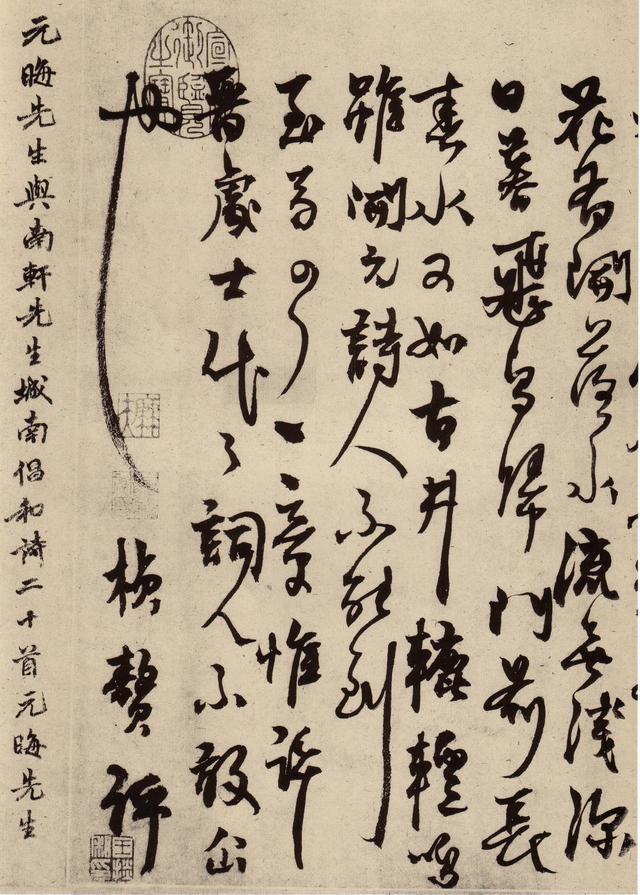 花有開落水流無淺深
日暮飛鳥歸門前長
春水又如古井轆轤鳴
雖開元詩人不能到
至 一章惟許
晉處士 詞人不敢
也 楨贅評
元晦先生與南軒先生城南倡和詩二十首元晦先生